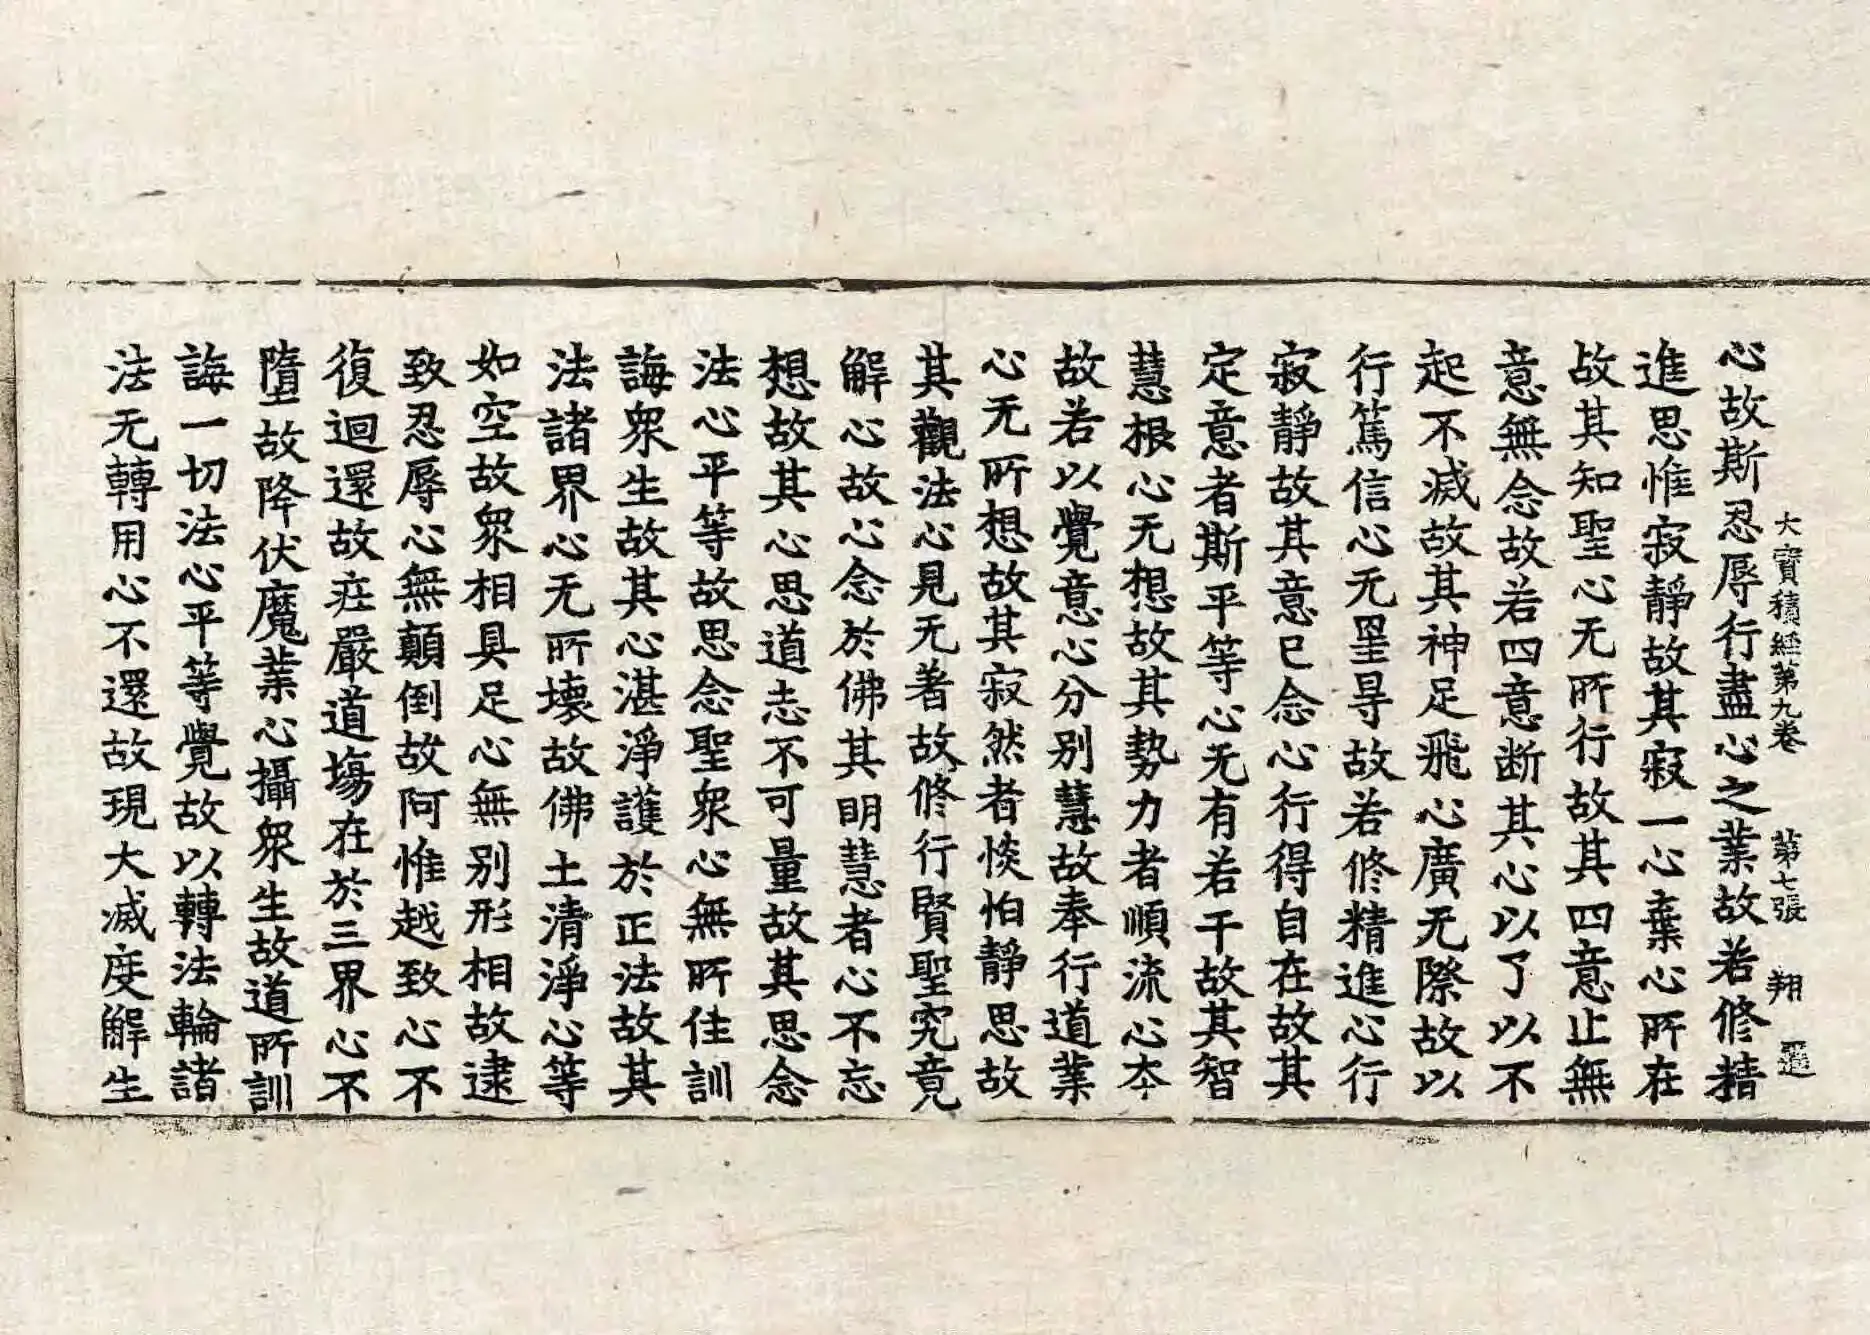 大寶積經第九卷 第七張 翔
心故斯忍辱行盡心之業故若修精
進思惟寂靜故其寂一心棄心所在
故其知聖心无所行故其四意止無
意無念故若四意断其心以了以不
起不滅故其神足飛心廣无際故以
行篤信心无罣㝵故若修精進心行
寂靜故其意已念心行得自在故其
定意者斯平等心无有若干故其智
慧根心无想故其勢力者順流心本
故若以覺意心分別慧故奉行道業
心无所想故其寂然者惔怕靜思故
其觀法心見无著故修行賢聖究竟
解心故心念於佛其明慧者心不忘
想故其心思道志不可量故其思念
法心平等故思念聖衆心無所住訓
誨衆生故其心湛淨護於正法故其
法諸界心无所壞故佛土清淨心等
如空故衆相具足心無別形相故逮
致忍辱心無顛倒故阿惟越致心不
復迴還故在嚴道場在於三界心不
墮故降伏魔業心攝衆生故道所訓
誨一切法心平等覺故以轉法輪諸
法无轉用心不還故現大滅度解生